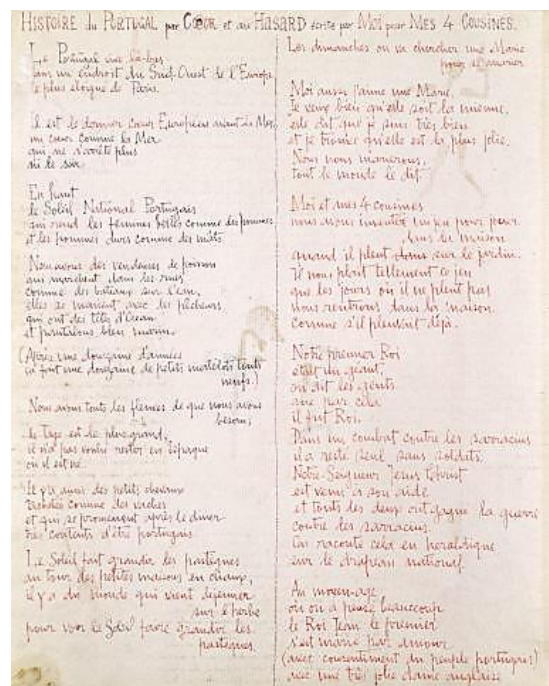 HISTOIRE du PORTUGAL par CŒUR et au HASARD écrite par MOI pour MES 4 COUSINES.
Le Portugal une là-bas
dans un endroit du Sud-Ouest de l'Europe,
le plus éloigné de Paris.
Il est le dernier cœur Européen avant la Mer,
un cœur comme la Mer
qui ne s'arrête plus
où le soir.
En haut
le Soleil National Portugais
qui rend les femmes belles comme des pommes
et les hommes durs comme des mâts.
Nous avons des vendeuses de poisson
qui marchent dans les rues
comme des bateaux sur l'eau,
elles se marient avec les pêcheurs,
qui ont des têtes d'Océan
et
(Après une douzaine d'années
ça fait une douzaine de petits matelots touts
neufs.)
Nous avons touts les fleuves de que nous avons
besoin;
le Tage est le plus grand,
il n'a pas voulu rester en Espagne
où il est né.
Il y a aussi des petits chevaux
comme des vaches
et qui se promènent après le dîner
très contents d'être portugais.
Le Soleil fait grandir les pastèques
au tour des petites maisons en chaux,
il y a du monde qui vient déjeuner
sur l'herbe
pour voir le Soleil faire grandir les
pastèques.
Les dimanches on va chercher une Marie
pour se marier
Moi aussi j'aime une Marie.
Je veux bien qu'elle soit la mienne,
elle dit que je suis très bien
et je trouve qu'elle est la plus jolie.
Nous nous marierons,
tout le monde le dit.
Moi et mes 4 cousines
nous avons inventé un jeu pour jouer
dans la maison
quand il pleut dans sur le jardin.
Il nous plaît tellement ce jeu
que les jours où il ne pleut pas
nous rentrons dans la maison
comme s'il pleuvait déjà.
Notre premier Roi
était un géant,
on dit les gents
que par cela
il fut Roi.
Dans un combat contre les sarracins
il a resté seul sans soldats.
Notre-Seigneur Jésus
est venu à son aide
et touts les deux ont gagné la guerre
contre des sarracins.
On raconte cela en héraldique
sur le drapeau national.
Au moyen-age
où on a pensé beaucoup
le Roi Jean le premier
s'est marié par amour
(avec consentiment du peuple portugais)
avec une très jolie dame anglaise